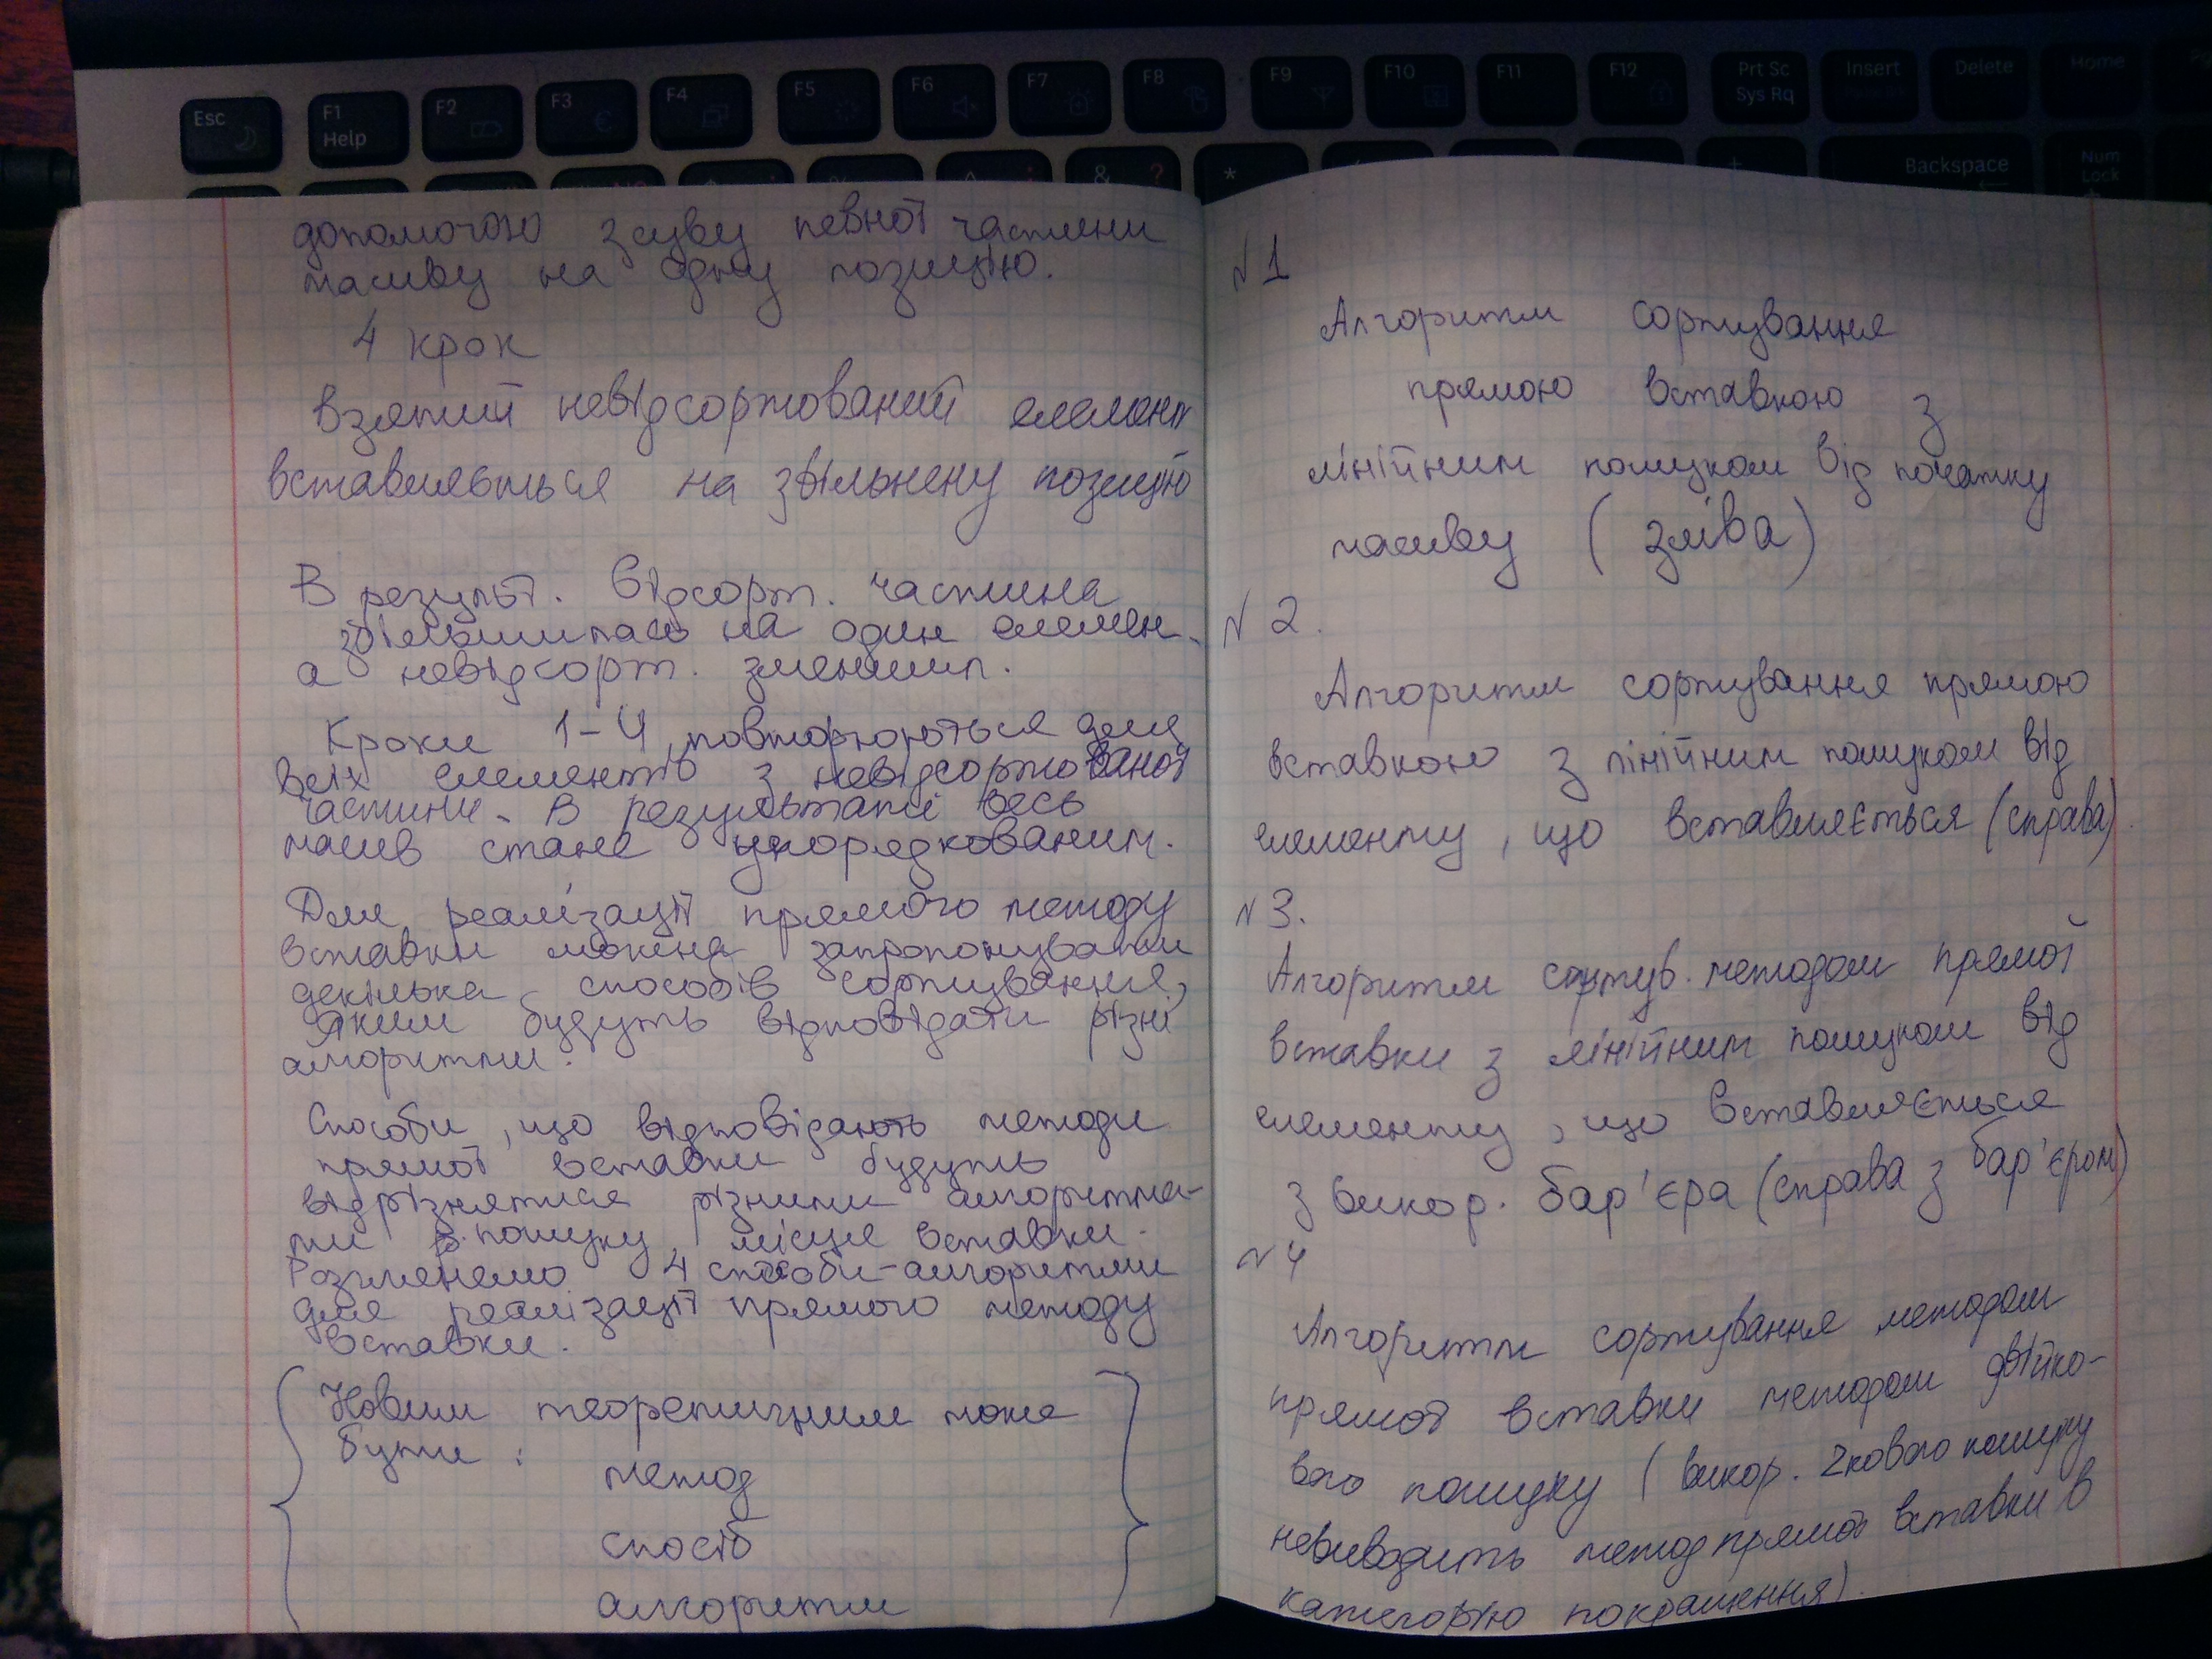 Esc
F1
Help
F2
F3
F4
F5
F6
F7
F8
F9
F10
F11
F12
Prt Sc
Sys Rq
Insert
Delete
Home
&
?
*
Backspace
Num
Lock
допомогою зсуву певної частини
масиву на одну позицію.
4 крок
Взятий невідсортований елемент
вставляється на звільнену позицію
В результ. відсорт. частина
збільшилась на один елемен.
а невідсорт. зменшил.
Кроки 1-4 повторюються для
всіх елементів з невідсортованої
частини. В результаті весь
масив стане упорядкованим.
Для реалізації прямого методу
вставки можна запропонувати
декілька способів сортування,
яким будуть відповідати різні
алгоритми.
Способи, що відповідають методи
прямої вставки будуть
відрізнятися різними алгоритма-
ми пошуку місця вставки.
Розглянемо 4 способи-алгоритми
для реалізації прямого методу
вставки.
Новим теоретичним може
бути:
метод
спосіб
алгоритм
N1
Алгоритм сортування
прямою вставкою з
лінійним пошуком від початку
масиву (зліва)
N2.
Алгоритм сортування прямою
вставкою з лінійним пошуком від
елементу, що вставляється (справа).
N3.
Алгоритм сортув. методом прямої
вставки з лінійним пошуком від
елементу, що вставляється
з викор. бар'єра (справа з бар'єром)
N4
Алгоритм сортування методом
прямої вставки методом двійко-
вого пошуку (викор. 2кового пошуку
невиводить метод прямої вставки в
категорію покращення).